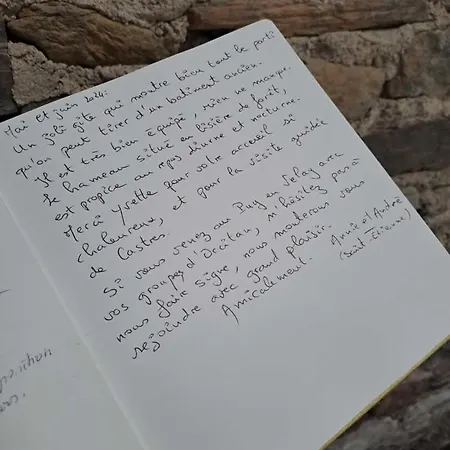 Mai et juin 2024.
Un joli gîte qui montre bien tout le parti
qu'on peut tirer d'un batiment ancien.
Il est très bien équipé, rien ne manque.
Le hameau situé en lisière de forêt,
est propice au repos diurne et nocturne.
Merci Yvette pour votre accueil si
chaleureux, et pour la visite guidée
de Castres.
Si vous venez au Puy en Velay avec
vos groupes d'Occitan, n'hésitez pas à
nous faire signe, nous monterons vous
rejoindre avec grand plaisir.
Amicalement.
Annie et André
(Saint-Etienne)